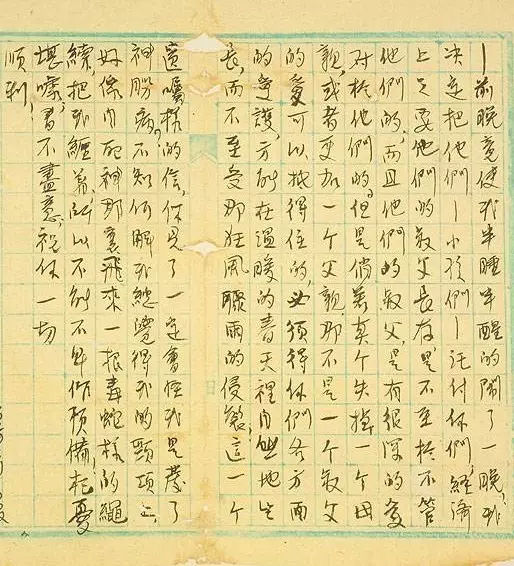 —前晚竟使我半睡半醒的鬧了一晚,我
决定把他們—小孩們—託付你們,經濟
上只要他們的叔父長存,是不至於不管
他們的,而且他們的叔父,是有很深的愛
对於他們的。但是倘若真个失掉一个母
親,或者更加一个父親,那不是一个叔父
的愛可以抵得住的,必須得你們各方面
的爱護,方能在溫暖的春天裡自然地生
長,而不至受那狂風驟雨的侵襲。這一个
遺囑樣的信,你見了一定會怪我是發了
神經病,不知何解我總覺得我的頸項上,
好像自死神那裏飛來一根毒蛇樣的繩
,把我纏着,所以不能不早作預備,杞憂
堪嗟,書不盡意,祝你一切
順利